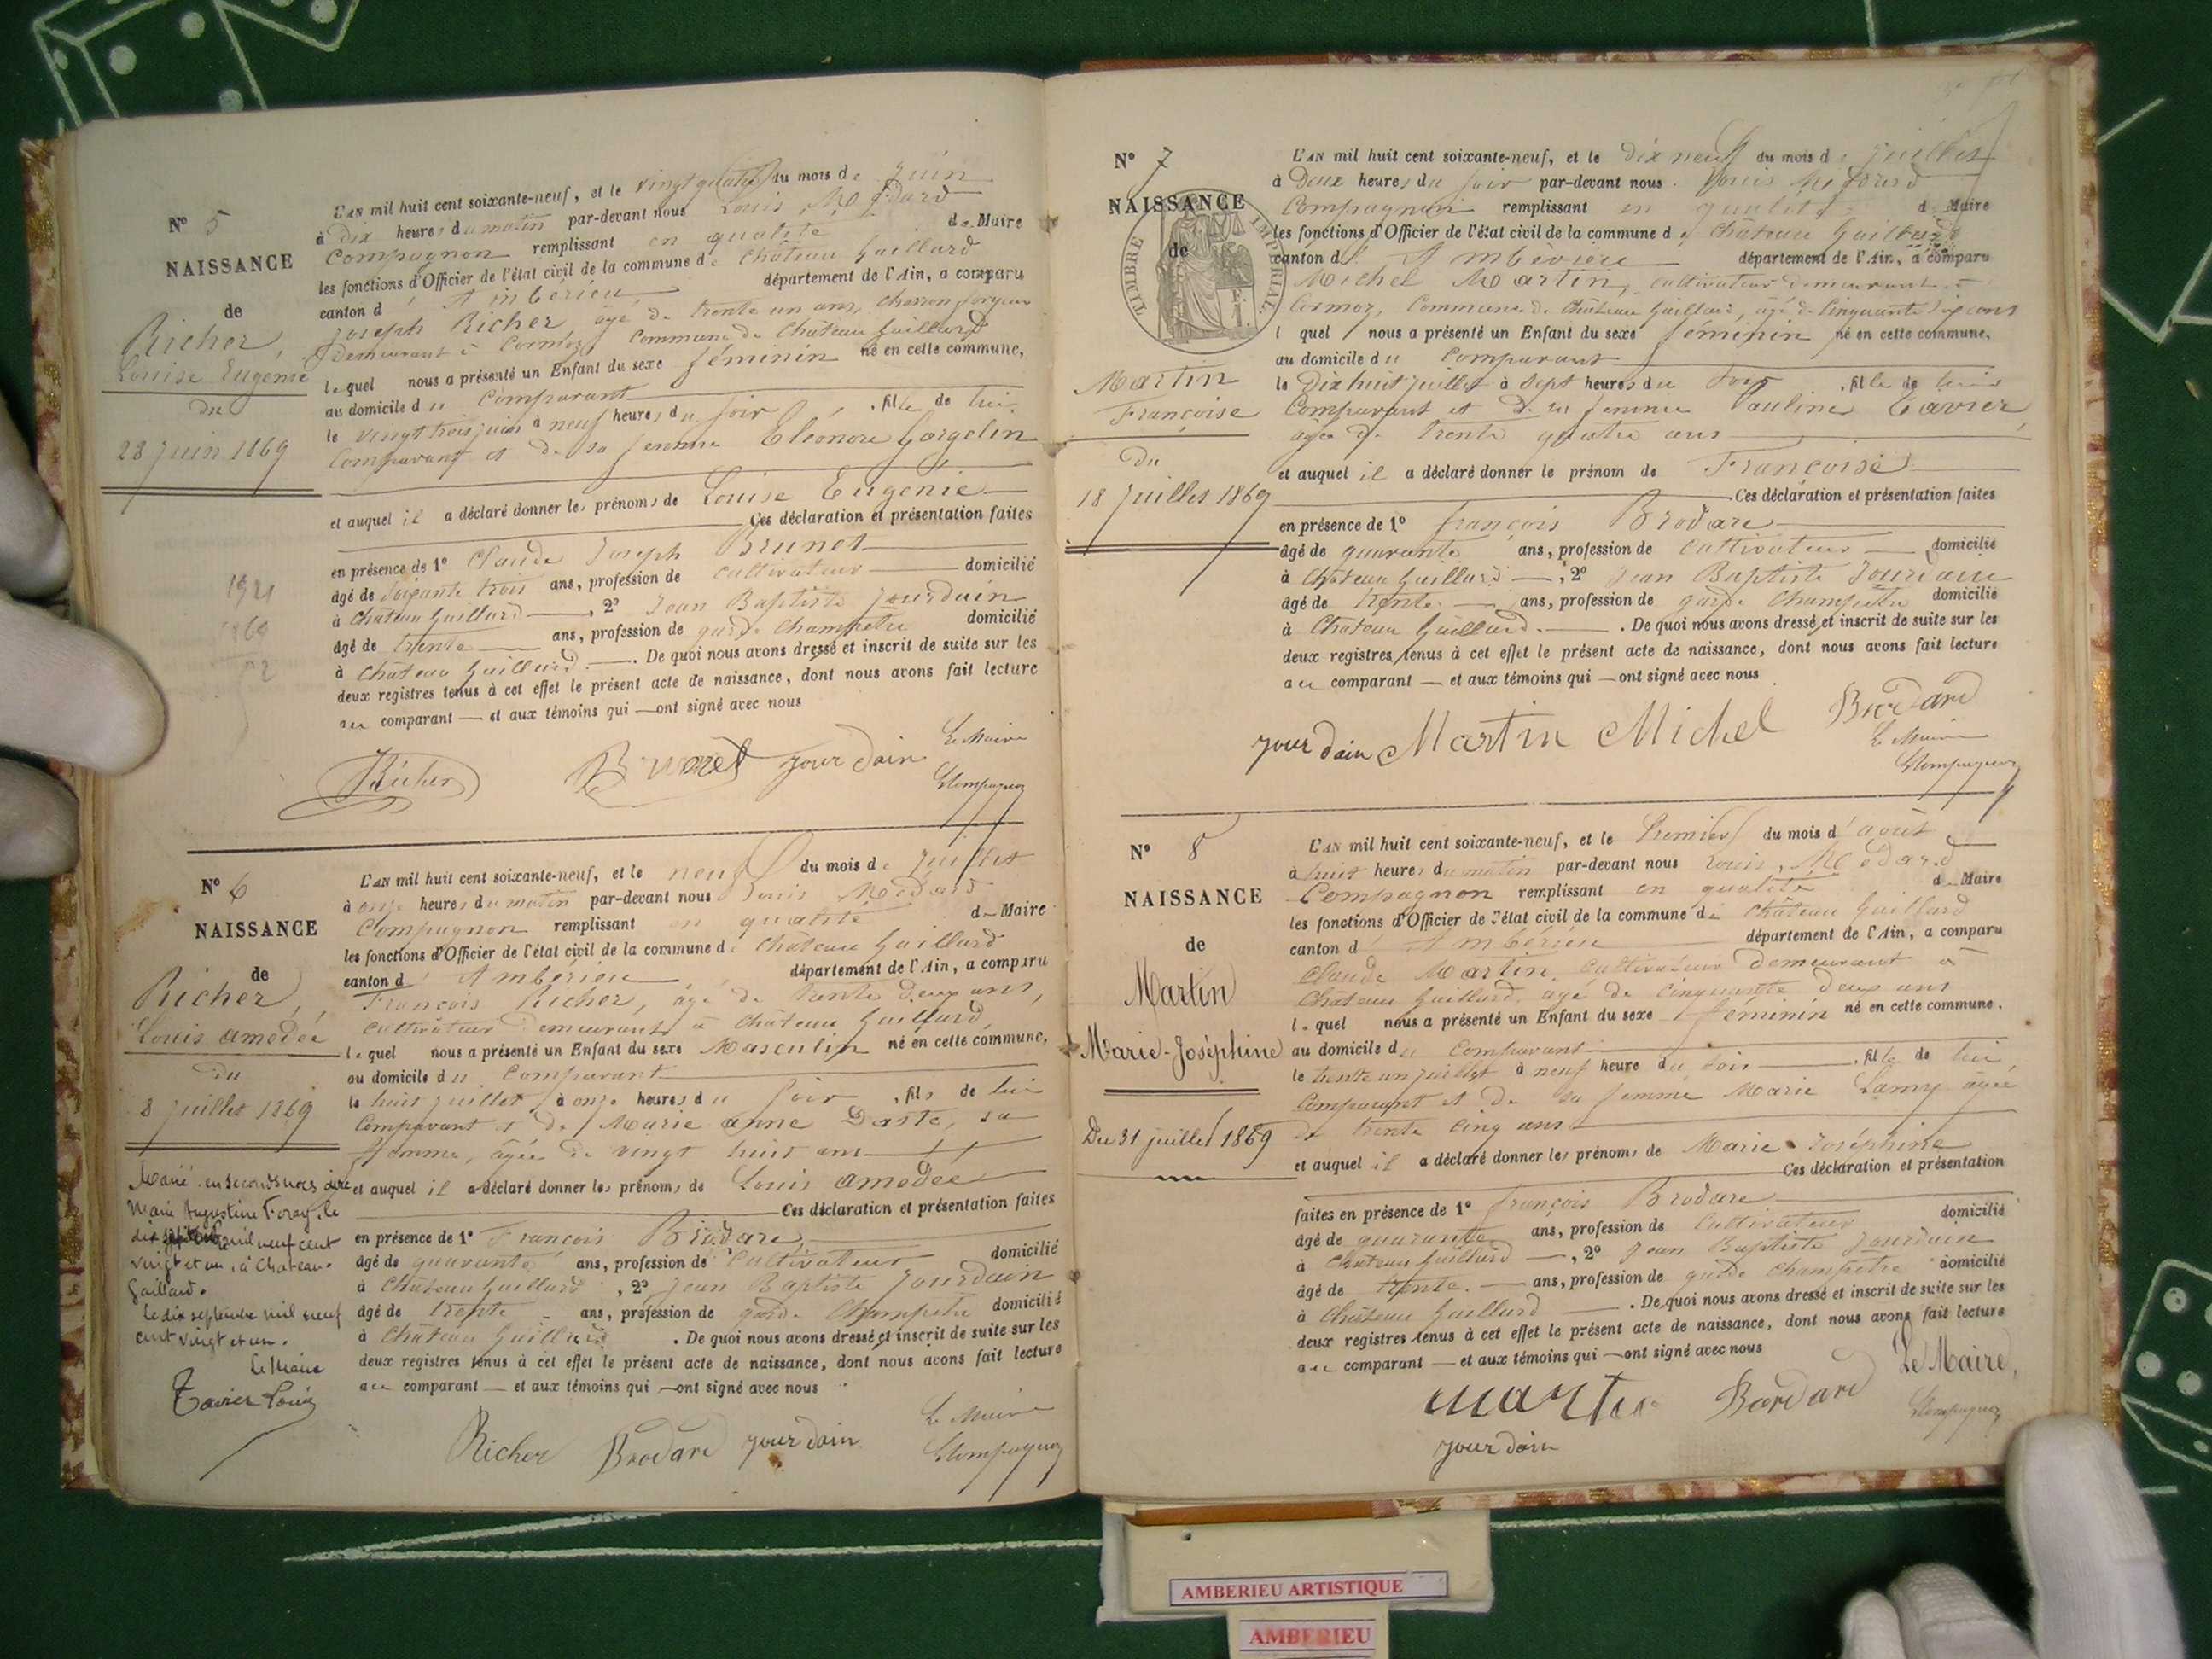 Nº 5
NAISSANCE
de
Richer,
Louise Eugénie
du
23 juin 1869
L'AN mil huit cent soixante-neuf, et le vingt quatre du mois de Juin
à Dix heures du matin par-devant nous Louis Médard
Compagnon remplissant en qualité de Maire
les fonctions d'Officier de l'état civil de la commune de Château Gaillard
canton d'Ambérieu département de l'Ain, a comparu
Joseph Richer, agé de trente un ans, charron forgeur
Demeurant à Cormoz, Commune de Château Gaillard
lequel nous a présenté un Enfant du sexe féminin né en cette commune,
au domicile du Comparant
le vingt trois juin à neuf heures du soir, fille de lui
Comparant et de sa femme Eléonore Gorgelin
et auquel il a déclaré donner les prénoms de Louise Eugénie
Ces déclaration et présentation faites
en présence de 1º Claude Joseph Brunet
âgé de Soixante trois ans, profession de cultivateur domicilié
à Château Gaillard, 2º Jean Baptiste Jourdain
âgé de trente ans, profession de garde Champêtre domicilié
à Château Gaillard. De quoi nous avons dressé et inscrit de suite sur les
deux registres tenus à cet effet le présent acte de naissance, dont nous avons fait lecture
au comparant et aux témoins qui ont signé avec nous
Richer Brunet jourdain
Le Maire
LCompagnon
1921
Nº 6
NAISSANCE
de
Richer,
Louis amédée
du
8 juillet 1869
L'AN mil huit cent soixante-neuf, et le neuf du mois de juillet
à onze heures du matin par-devant nous Louis Médard
Compagnon remplissant en qualité de Maire
les fonctions d'Officier de l'état civil de la commune de Château Gaillard
canton d'Ambérieu département de l'Ain, a comparu
François Richer, âgé de trente deux ans,
cultivateur demeurant à Château Gaillard
lequel nous a présenté un Enfant du sexe Masculin né en cette commune,
au domicile du Comparant
le huit juillet à onze heures du soir, fils de lui
Comparant et de Marie anne Daste, sa
femme, âgée de vingt huit ans
et auquel il a déclaré donner les prénoms de Louis amédée
Ces déclaration et présentation faites
en présence de 1º François Brodare
âgé de quarante ans, profession de Cultivateur domicilié
à Château Gaillard, 2º Jean Baptiste Jourdain
âgé de trente ans, profession de garde Champêtre domicilié
à Château Gaillard. De quoi nous avons dressé et inscrit de suite sur les
deux registres tenus à cet effet le présent acte de naissance, dont nous avons fait lecture
au comparant et aux témoins qui ont signé avec nous
Richer Brodard jourdain
Le Maire
LCompagnon
Marié en secondes noces avec
Marie Augustine Foray, le
dix mil neuf cent
vingt et un, à Chateau-
Gaillard.
Le dix septembre mil neuf
cent vingt et un.
Le Maire
Tavier Louis
Nº 7
NAISSANCE
de
TIMBRE IMPERIAL
Martin
Françoise
du
18 Juillet 1869
L'AN mil huit cent soixante-neuf, et le Dix neuf du mois de Juillet
à Deux heures du soir par-devant nous Louis Médard
Compagnon remplissant en qualité de Maire
les fonctions d'Officier de l'état civil de la commune de Château Gaillard
canton d'Ambérieu département de l'Ain, a comparu
Michel Martin, cultivateur demeurant à
Cormoz, Commune de Château Gaillard, âgé de Cinquante six ans
lequel nous a présenté un Enfant du sexe féminin né en cette commune,
au domicile du Comparant
le Dix huit juillet à Sept heures du soir, fille de lui
Comparant et de sa femme Pauline Tavier
agée de trente quatre ans
et auquel il a déclaré donner le prénom de Françoise
Ces déclaration et présentation faites
en présence de 1º françois Brodare
âgé de quarante ans, profession de Cultivateur domicilié
à Château Gaillard, 2º Jean Baptiste Jourdain
âgé de trente ans, profession de garde Champêtre domicilié
à Château Gaillard. De quoi nous avons dressé et inscrit de suite sur les
deux registres tenus à cet effet le présent acte de naissance, dont nous avons fait lecture
au comparant et aux témoins qui ont signé avec nous
jourdain Martin Michel Brodard
Le Maire
LCompagnon
Nº 8
NAISSANCE
de
Martin
Marie-Joséphine
Du 31 juillet 1869
L'AN mil huit cent soixante-neuf, et le Premier du mois d'août
à huit heures du matin par-devant nous Louis Médard
Compagnon remplissant en qualité de Maire
les fonctions d'Officier de l'état civil de la commune de Château Gaillard
canton d'Ambérieu département de l'Ain, a comparu
Claude Martin, Cultivateur demeurant à
Château Gaillard, agé de cinquante deux ans
lequel nous a présenté un Enfant du sexe féminin né en cette commune,
au domicile du Comparant
le trente un juillet à neuf heure du soir, fille de lui
Comparant et de sa femme Marie Lamy âgée
de trente cinq ans
et auquel il a déclaré donner les prénoms de Marie Joséphine
Ces déclaration et présentation
faites en présence de 1º françois Brodare
âgé de quarante ans, profession de Cultivateur domicilié
à Château Gaillard, 2º Jean Baptiste Jourdain
âgé de trente ans, profession de garde champêtre domicilié
à Château Gaillard. De quoi nous avons dressé et inscrit de suite sur les
deux registres tenus à cet effet le présent acte de naissance, dont nous avons fait lecture
au comparant et aux témoins qui ont signé avec nous
Martin Brodard Le Maire,
jourdain LCompagnon
AMBERIEU ARTISTIQUE
AMBERIEU